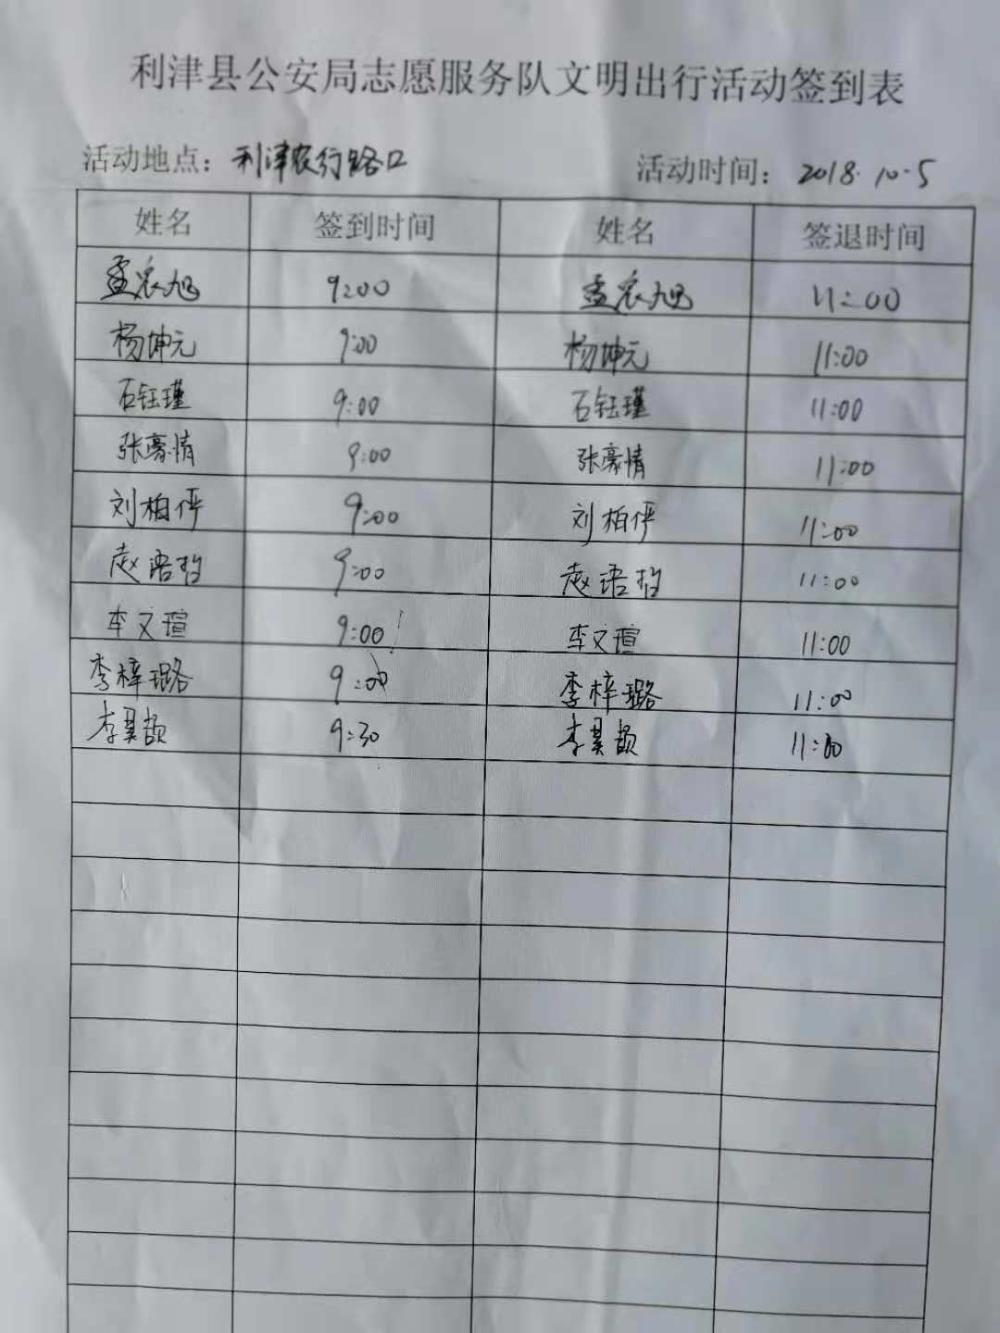 利津县公安局志愿服务队文明出行活动签到表
活动地点：利津农行路口 活动时间：2018.10.5
姓名 签到时间 姓名 签退时间
孟宸旭 9:00 孟宸旭 11:00
杨坤元 9:00 杨坤元 11:00
石钰瑾 9:00 石钰瑾 11:00
张豪情 9:00 张豪情 11:00
刘柏伊 9:00 刘柏伊 11:00
赵语哲 9:00 赵语哲 11:00
李文瑄 9:00 李文瑄 11:00
李梓璐 9:00 李梓璐 11:00
李昊 9:30 李昊 11:00